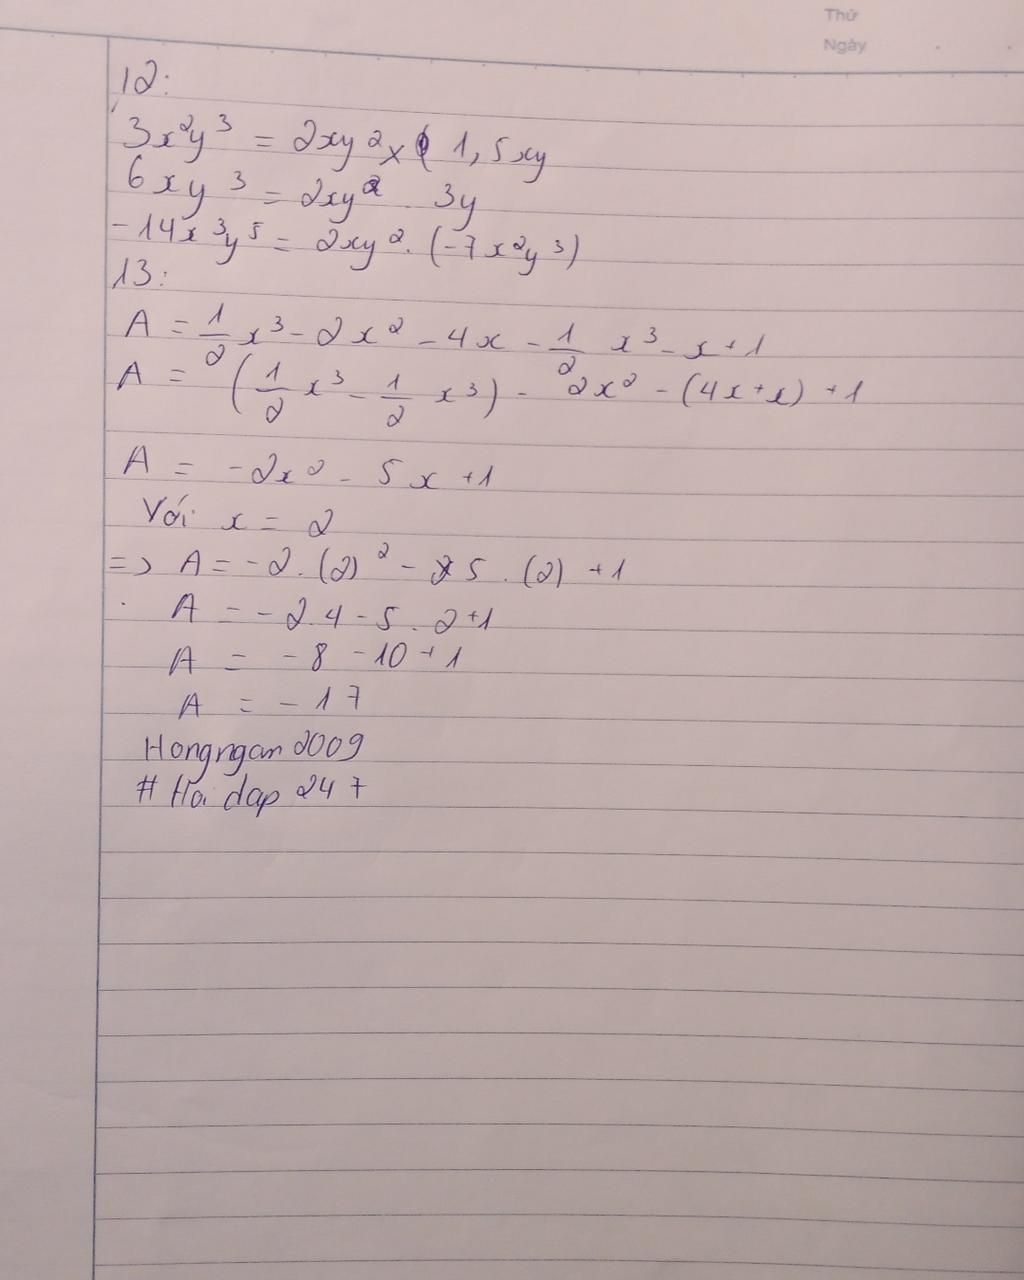 Thứ
Ngày
12:
3x²y³ = 2xy² x 1,5xy
6xy³ = 2xy² . 3y
-14x³y⁵ = 2xy² . (-7x²y³)
13:
A = 1/2 x³ - 2x² - 4x - 1/2 x³ - x + 1
A = (1/2 x³ - 1/2 x³) - 2x² - (4x + x) + 1
A = -2x² - 5x + 1
Với x = 2
=> A = -2 . (2)² - 5 . (2) + 1
A = -2.4 - 5 . 2 + 1
A = -8 - 10 + 1
A = -17
Hongngan 2009
# Hoi dap 247